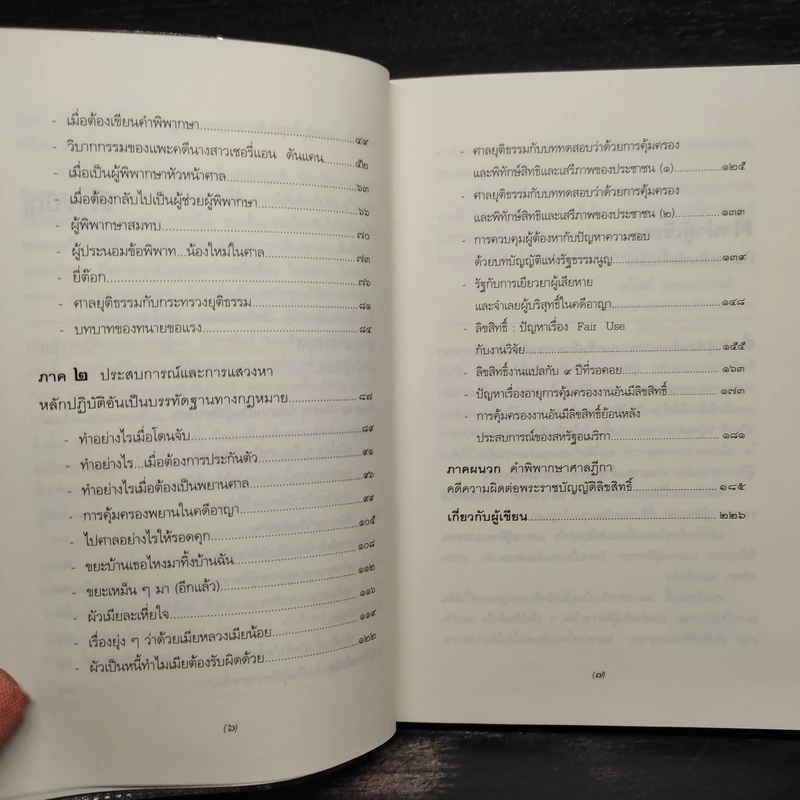 - เมื่อต้องเขียนคำพิพากษา....................๔๙
- วิบากกรรมของแพะคดีนางสาวเชอรี่แอน ดันแคน........๕๒
- เมื่อเป็นผู้พิพากษาหัวหน้าศาล....................๖๓
- เมื่อต้องกลับไปเป็นผู้ช่วยผู้พิพากษา....................๖๖
- ผู้พิพากษาสมทบ....................๗๐
- ผู้ประนอมข้อพิพาท...น้องใหม่ในศาล....................๗๓
- ยี่ต๊อก....................๗๖
- ศาลยุติธรรมกับกระทรวงยุติธรรม....................๘๑
- บทบาทของทนายขอแรง....................๘๔
ภาค ๒ ประสบการณ์และการแสวงหา
หลักปฏิบัติอันเป็นบรรทัดฐานทางกฎหมาย....................๘๗
- ทำอย่างไรเมื่อโดนจับ....................๘๙
- ทำอย่างไร...เมื่อต้องการประกันตัว....................๙๑
- ทำอย่างไรเมื่อต้องเป็นพยานศาล....................๙๖
- การคุ้มครองพยานในคดีอาญา....................๙๙
- ไปศาลอย่างไรให้รอดคุก....................๑๐๕
- ขยะบ้านเธอไหงมาทิ้งบ้านฉัน....................๑๐๘
- ขยะเหม็น ๆ มา (อีกแล้ว)....................๑๑๒
- ผัวเมียละเหี่ยใจ....................๑๑๖
- เรื่องยุ่ง ๆ ว่าด้วยเมียหลวงเมียน้อย....................๑๑๙
- ผัวเป็นหนี้ทำไมเมียต้องรับผิดด้วย....................๑๒๒
(๖)
- ศาลยุติธรรมกับบททดสอบว่าด้วยการคุ้มครอง
และพิทักษ์สิทธิและเสรีภาพของประชาชน (๑)....................๑๒๕
- ศาลยุติธรรมกับบททดสอบว่าด้วยการคุ้มครอง
และพิทักษ์สิทธิและเสรีภาพของประชาชน (๒)....................๑๓๓
- การควบคุมผู้ต้องหากับปัญหาความชอบ
ด้วยบทบัญญัติแห่งรัฐธรรมนูญ....................๑๓๙
- รัฐกับการเยียวยาผู้เสียหาย
และจำเลยผู้บริสุทธิ์ในคดีอาญา....................๑๔๘
- ลิขสิทธิ์ : ปัญหาเรื่อง Fair Use
กับงานวิจัย....................๑๕๕
- ลิขสิทธิ์งานแปลกับ ๙ ปีที่รอคอย....................๑๖๓
- ปัญหาเรื่องอายุการคุ้มครองงานอันมีลิขสิทธิ์....................๑๗๓
- การคุ้มครองงานอันมีลิขสิทธิ์ย้อนหลัง
ประสบการณ์ของสหรัฐอเมริกา....................๑๘๑
ภาคผนวก คำพิพากษาศาลฎีกา
คดีความผิดต่อพระราชบัญญัติลิขสิทธิ์....................๑๘๕
เกี่ยวกับผู้เขียน....................๒๒๖
(๗)